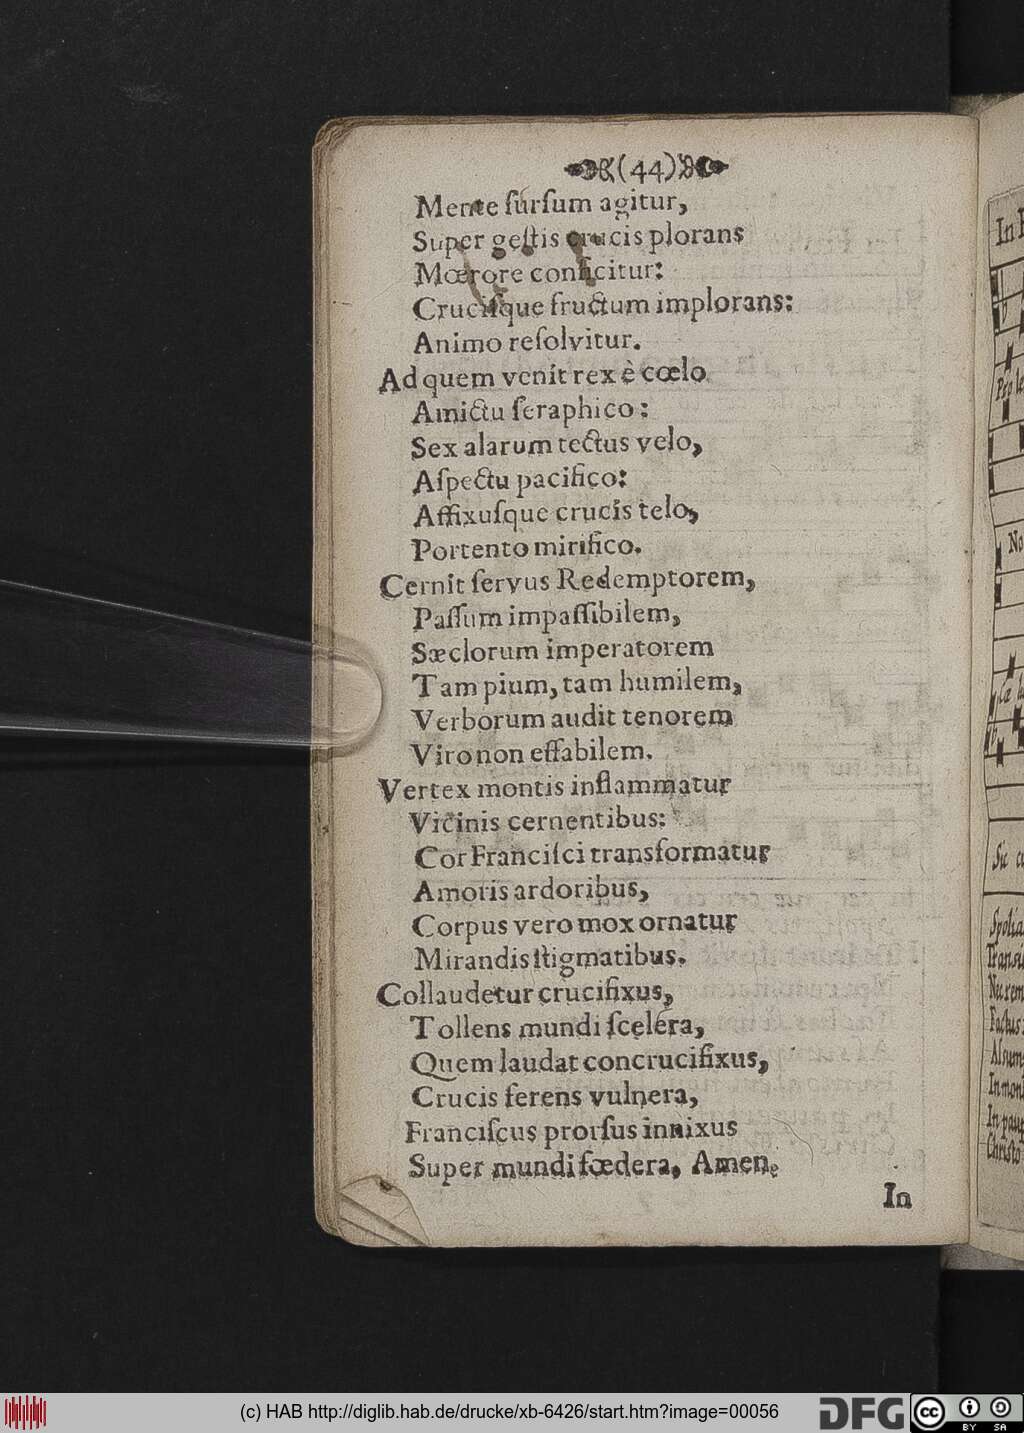 (44)
Mente ſurſum agitur,
Super geſtis crucis plorans
Mœrore conficitur:
Cruciſque fructum implorans:
Animo reſolvitur.
Ad quem venit rex è cœlo
Amictu ſeraphico:
Sex alarum tectus velo,
Aſpectu pacifico:
Affixuſque crucis telo,
Portento mirifico.
Cernit ſervus Redemptorem,
Paſſum impaſſibilem,
Sæclorum imperatorem
Tam pium, tam humilem,
Verborum audit tenorem
Viro non effabilem.
Vertex montis inflammatur
Vicinis cernentibus:
Cor Franciſci transformatur
Amoris ardoribus,
Corpus vero mox ornatur
Mirandis ſtigmatibus.
Collaudetur crucifixus,
Tollens mundi ſcelera,
Quem laudat concrucifixus,
Crucis ferens vulnera,
Franciſcus prorſus innixus
Super mundi fœdera, Amen.
In
In
No
Sic
Spolia
Transi
Nec rem
Factus
Aſsum
In mon
In paup
Chriſto
(c) HAB http://diglib.hab.de/drucke/xb-6426/start.htm?image=00056
DFG
cc BY SA